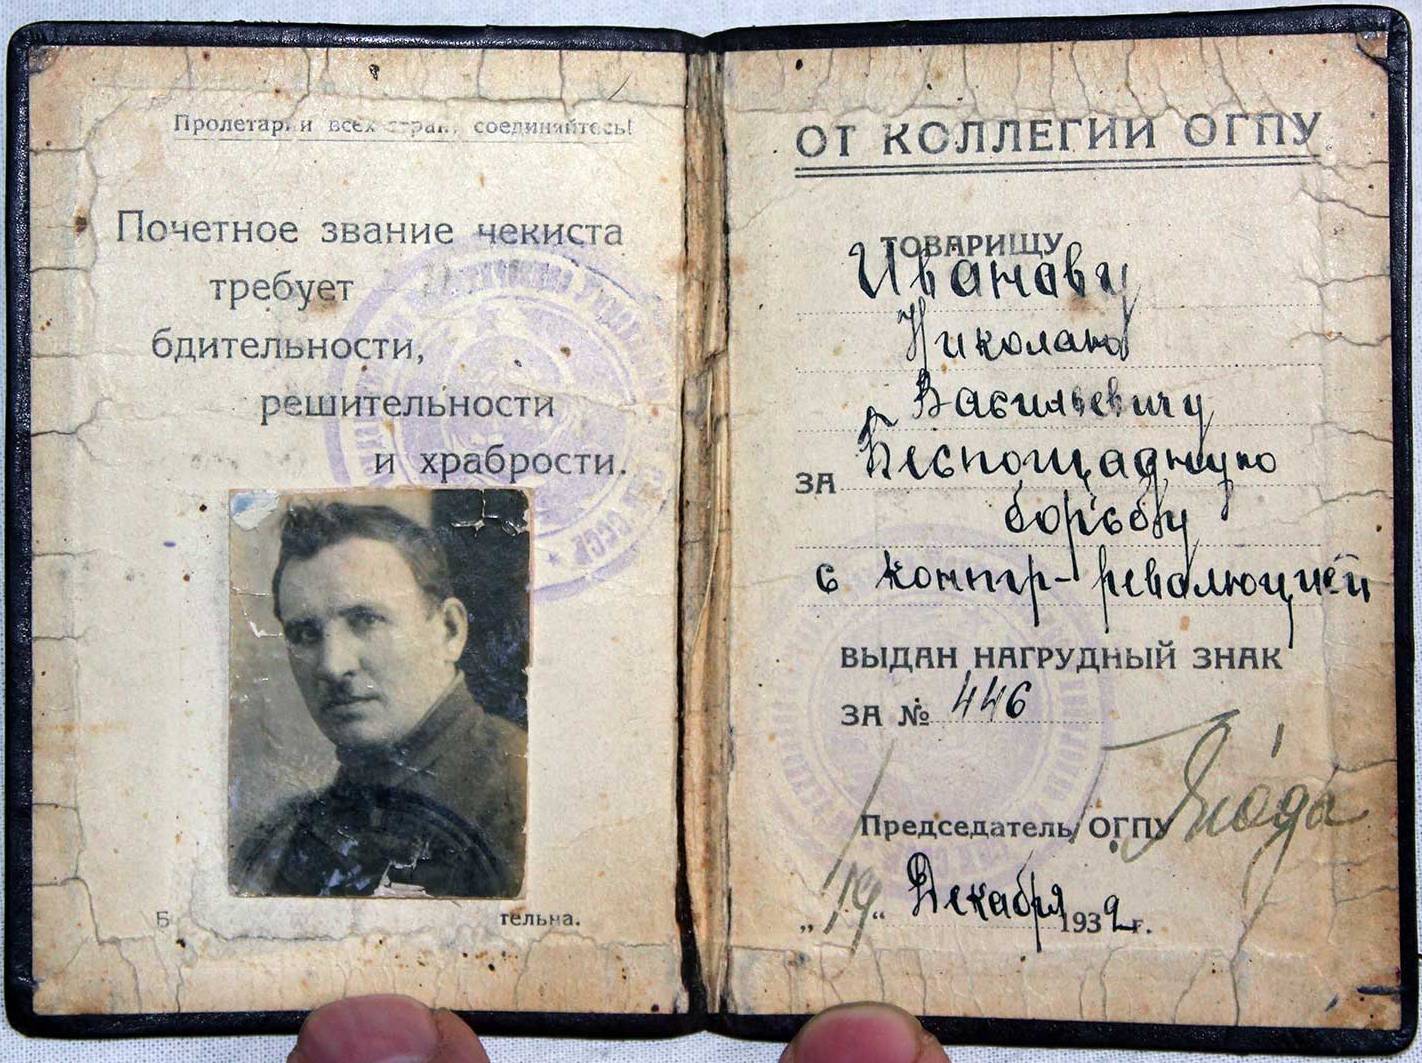 Пролетарии всех стран, соединяйтесь!
Почетное звание чекиста
требует
бдительности,
решительности
и храбрости.
Б тельна.
ОТ КОЛЛЕГИИ ОГПУ
ТОВАРИЩУ
Иванову
Николаю
Васильевичу
ЗА Беспощадную
борьбу
с контр-революцией
ВЫДАН НАГРУДНЫЙ ЗНАК
ЗА № 446
Председатель ОГПУ Ягода
„19“ Декабря 1932 г.
СССР